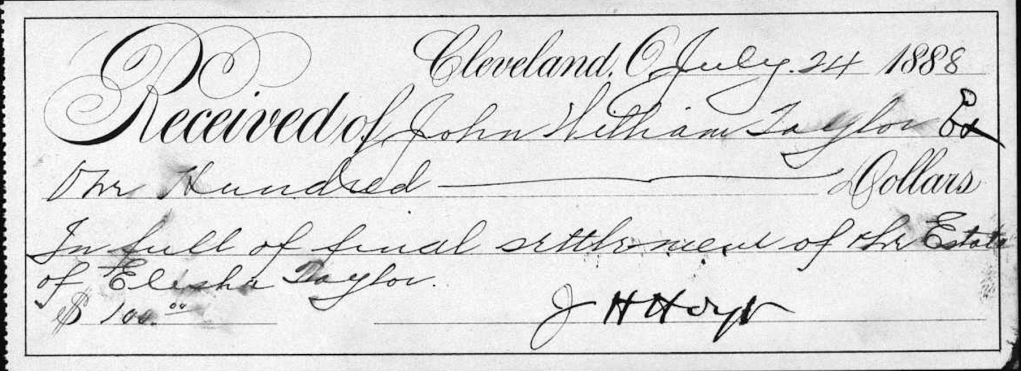 Cleveland, O. July 24 1888
Received of John William Taylor Ex
One Hundred Dollars
In full of final settlement of the Estate
of Elisha Taylor.
$ 100.00
J H Hoyt